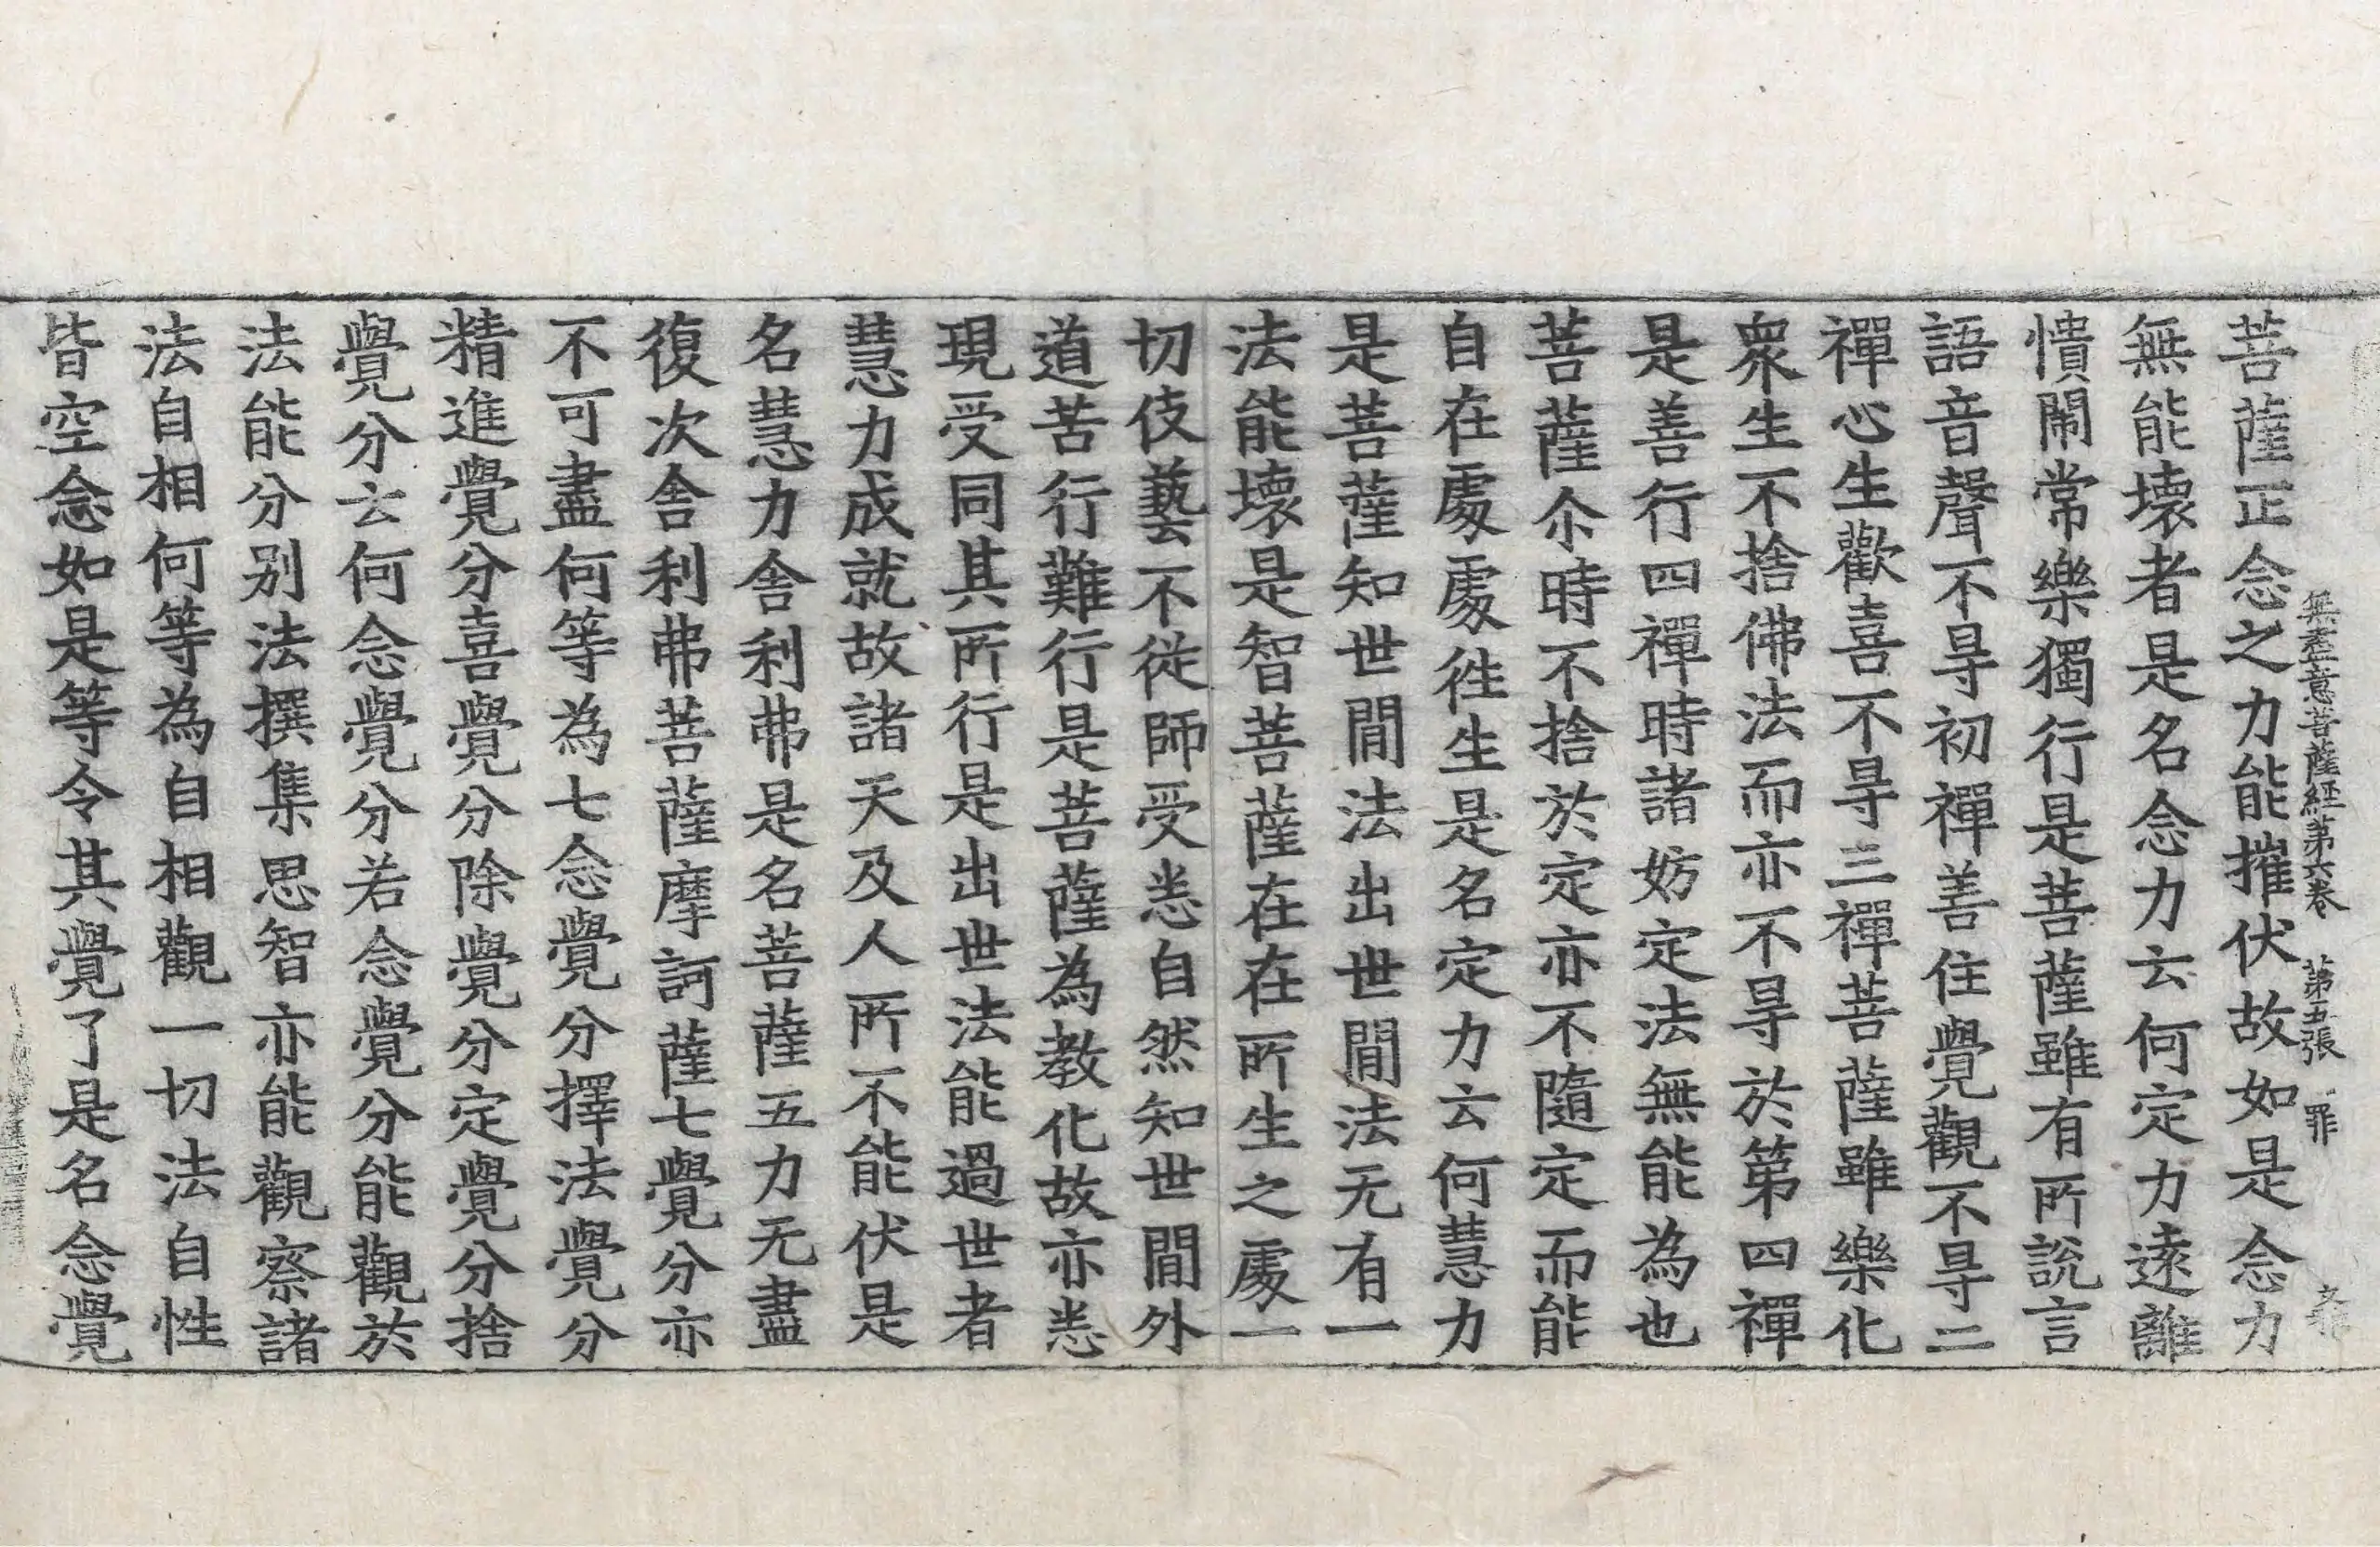 無盡意菩薩経第六巻 第五張 罪
菩薩正念之力能摧伏故如是念力
無能壊者是名念力云何定力遠離
憒閙常樂獨行是菩薩雖有所說言
語音聲不㝵初禪善住覺觀不㝵二
禪心生歡喜不㝵三禪菩薩雖樂化
衆生不捨佛法而亦不㝵於第四禪
是善行四禪時諸妨定法無能為也
菩薩尒時不捨於定亦不隨定而能
自在處處徃生是名定力云何慧力
是菩薩知世閒法出世閒法无有一
法能壊是智菩薩在在所生之處一
切伎藝不從師受悉自然知世閒外
道苦行難行是菩薩為教化故亦悉
現受同其所行是出世法能過世者
慧力成就故諸天及人所不能伏是
名慧力舎利弗是名菩薩五力无盡
復次舎利弗菩薩摩訶薩七覺分亦
不可盡何等為七念覺分擇法覺分
精進覺分喜覺分除覺分定覺分捨
覺分云何念覺分若念覺分能觀於
法能分别法撰集思智亦能觀察諸
法自相何等為自相觀一切法自性
皆空念如是等令其覺了是名念覺